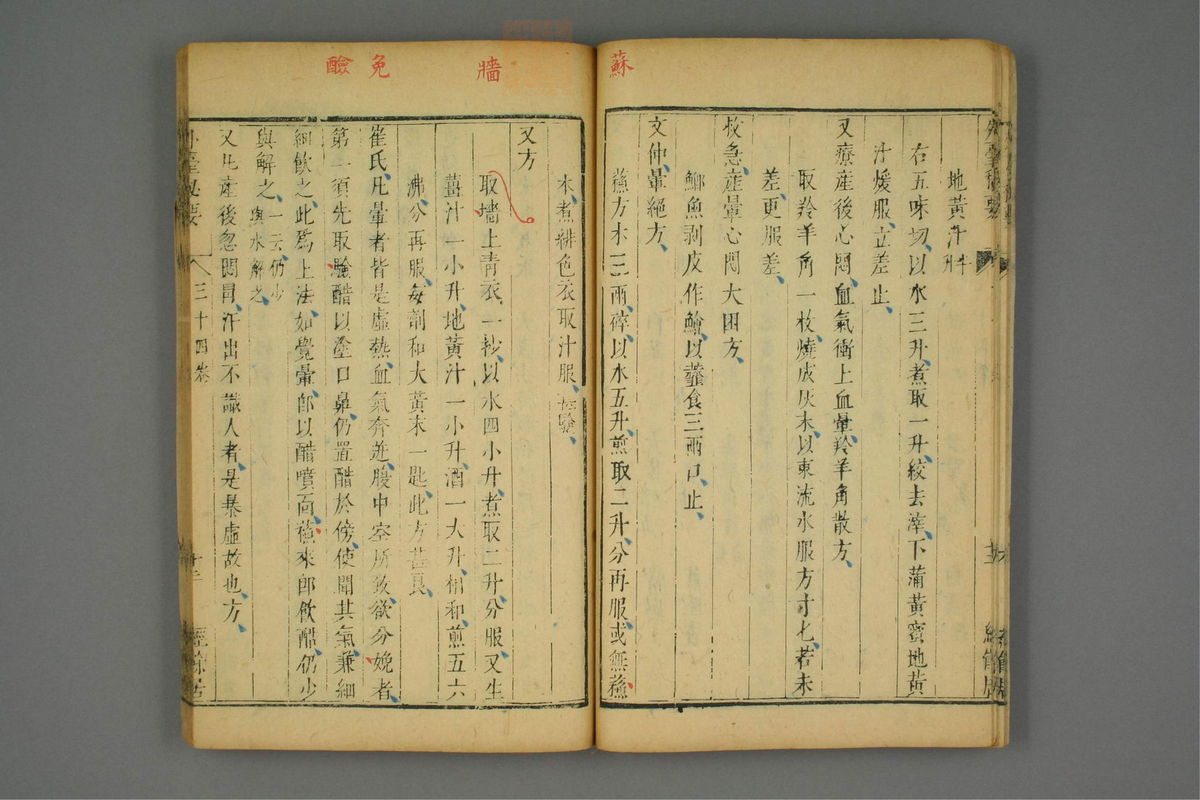 蘇
地黃汁半升
右五味切以水三升煮取一升絞去滓下蒲黃蜜地黃
汁煖服立差止
又療産後心悶血氣衝上血暈羚羊角散方
取羚羊角一枚燒成灰末以東流水服方寸七若未
差更服差
救急産暈心悶大困方
鯽魚剥皮作鱠以虀食三兩口止
文仲暈絕方
蘓方木三兩碎以水五升煎取二升分再服或無蘓
牆 免 醶
木煮緋色衣取汁服 驗
又方
取墻上青衣一抄以水四小升煮取二升分服又生
薑汁一小升地黃汁一小升酒一大升相和煎五六
沸分再服每劑和大黃末一匙此方甚良
崔氏凡暈者皆是虛熱血氣奔迸腹中空所致欲分娩者
第一須先取釅醋以塗口鼻仍置醋於傍使聞其氣兼細
細飲之此爲上法如覺暈即以醋噴面蘓來即飲醋仍少
與解之一云仍少與水解之
又凡産後忽悶冒汗出不識人者是暴虛故也方
外臺秘要 三十四卷 十二 經餘居